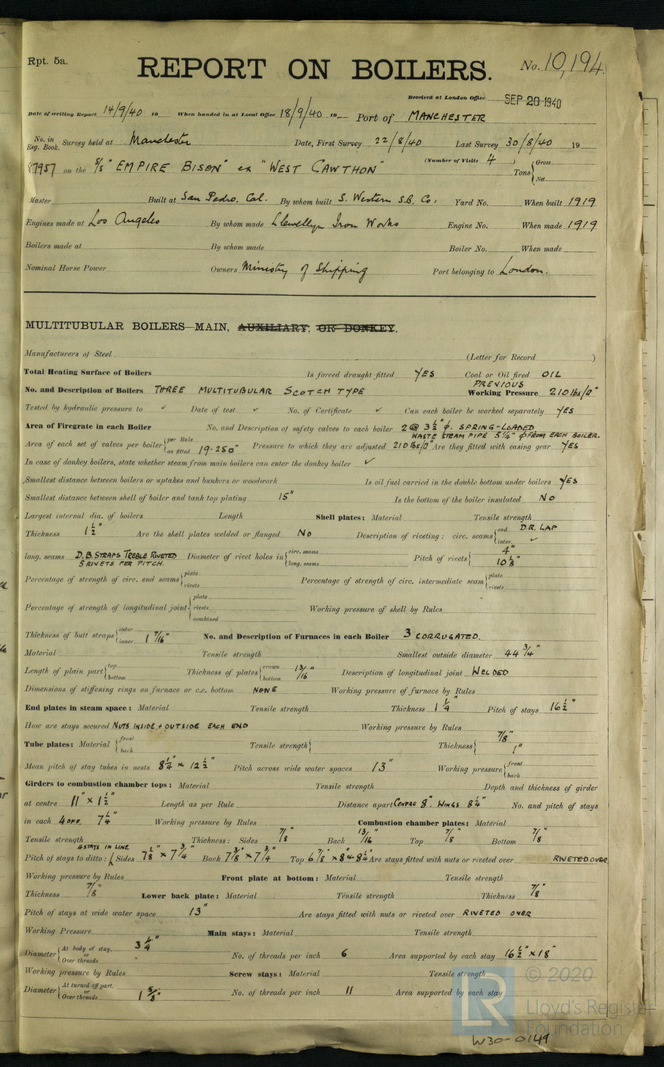 Rpt. 5a.
REPORT ON BOILERS.
No. 10,194
Received at London Office SEP 20 1940
Date of writing Report 14/9/40 19 When handed in at Local Office 18/9/40 19 Port of MANCHESTER
No. in Reg. Book. Survey held at Manchester Date, First Survey 22/8/40 Last Survey 30/8/40 19
87957 on the S/S "EMPIRE BISON" ex "WEST CAWTHON" (Number of Visits 4 ) Tons Gross Net
Master Built at San Pedro, Cal. By whom built S. Western S.B. Co. Yard No. When built 1919
Engines made at Los Angeles By whom made Llewellyn Iron Works Engine No. When made 1919
Boilers made at By whom made Boiler No. When made
Nominal Horse Power Owners Ministry of Shipping Port belonging to London.
MULTITUBULAR BOILERS—MAIN, AUXILIARY, OR DONKEY.
Manufacturers of Steel (Letter for Record )
Total Heating Surface of Boilers Is forced draught fitted YES Coal or Oil fired OIL
No. and Description of Boilers THREE MULTITUBULAR SCOTCH TYPE PREVIOUS Working Pressure 210 lbs/□"
Tested by hydraulic pressure to ✓ Date of test ✓ No. of Certificate ✓ Can each boiler be worked separately YES
Area of Firegrate in each Boiler No. and Description of safety valves to each boiler 2 @ 3½" φ. SPRING-LOADED
WASTE STEAM PIPE 5¼" φ FROM EACH BOILER.
Area of each set of valves per boiler per Rule as fitted 19.250" Pressure to which they are adjusted 210 lbs/□" Are they fitted with easing gear YES
In case of donkey boilers, state whether steam from main boilers can enter the donkey boiler ✓
Smallest distance between boilers or uptakes and bunkers or woodwork Is oil fuel carried in the double bottom under boilers YES
Smallest distance between shell of boiler and tank top plating 15" Is the bottom of the boiler insulated NO
Largest internal dia. of boilers Length Shell plates: Material Tensile strength
Thickness 1½" Are the shell plates welded or flanged NO Description of riveting: circ. seams end D.R. LAP inter. ✓
long. seams D.B. STRAPS TREBLE RIVETED 5 RIVETS PER PITCH. Diameter of rivet holes in circ. seams long. seams Pitch of rivets 4" 10⅛"
Percentage of strength of circ. end seams plate rivets Percentage of strength of circ. intermediate seam plate rivets
Percentage of strength of longitudinal joint plate rivets combined Working pressure of shell by Rules
Thickness of butt straps outer inner 1 7/16" No. and Description of Furnaces in each Boiler 3 CORRUGATED.
Material Tensile strength Smallest outside diameter 44¾"
Length of plain part top bottom Thickness of plates crown bottom 13/16" Description of longitudinal joint WELDED
Dimensions of stiffening rings on furnace or c.c. bottom NONE Working pressure of furnace by Rules
End plates in steam space: Material Tensile strength Thickness 1¼" Pitch of stays 16½"
How are stays secured NUTS INSIDE + OUTSIDE EACH END Working pressure by Rules
Tube plates: Material front back Tensile strength Thickness 7/8" 1"
Mean pitch of stay tubes in nests 8¼" x 12½" Pitch across wide water spaces 13" Working pressure front back
Girders to combustion chamber tops: Material Tensile strength Depth and thickness of girder
at centre 11 x 1½" Length as per Rule Distance apart CENTRE 8" WINGS 8¼" No. and pitch of stays
in each 4 OFF. 7¼" Working pressure by Rules Combustion chamber plates: Material
Tensile strength Thickness: Sides 7/8" Back 13/16" Top 7/8" Bottom 7/8"
4 STAYS IN LINE
Pitch of stays to ditto: Sides 7⅛" x 7¾" Back 7⅜" x 7¾" Top Are stays fitted with nuts or riveted over RIVETED OVER
Working pressure by Rules Front plate at bottom: Material Tensile strength
Thickness 7/8" Lower back plate: Material Tensile strength Thickness 7/8"
Pitch of stays at wide water space 13" Are stays fitted with nuts or riveted over RIVETED OVER
Working Pressure Main stays: Material Tensile strength
Diameter At body of stay, or Over threads 3¼" No. of threads per inch 6 Area supported by each stay 16½" x 18"
Working pressure by Rules Screw stays: Material Tensile strength
Diameter At turned off part, or Over threads 1⅝" No. of threads per inch 11 Area supported by each stay
© 2020
LR
Lloyd's Register
Foundation
W30-0149